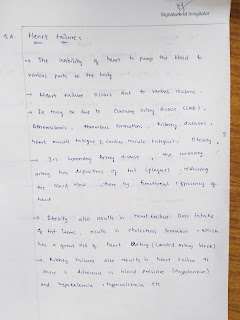 Signature of Invigilator
Heart failure :
→ The inability of heart to pump the blood to
various parts to the body
→ Heart failure occurs due to various reasons,
→ It may be due to coronary artery disease (CAD),
Atherosclerosis, thrombus formations, kidney diseases,
heart muscle fatigue (cardiac muscle fatigue), Obesity,
→ In Coronary Artery disease, the coronary
artery has deposition of fat (plaques), reducing
the blood flow, there by functional efficiency of
heart
→ Obesity also results in heart failure. Over intake
of fat items, results in cholesterol formation, which
has a great risk of heart artery block)
→ Kidney failure also results in heart failure as
there is difference in blood pressure
and hypokalemia, hyperkalemia etc